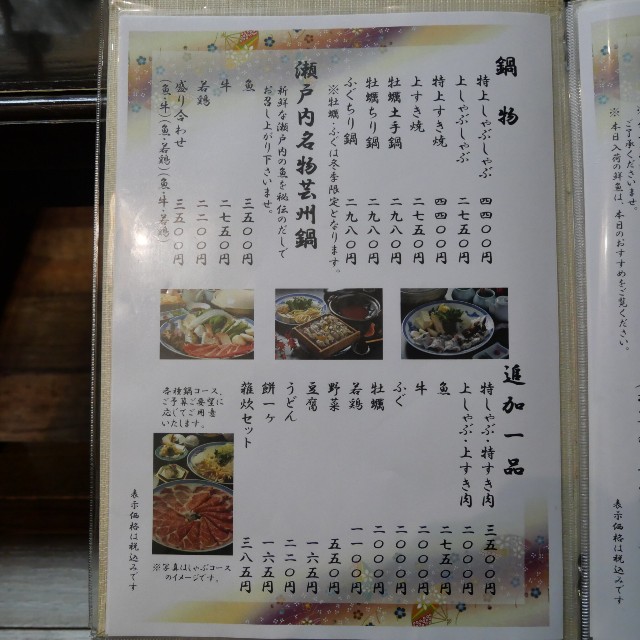 鍋物
特上しゃぶしゃぶ 四四〇〇円
上しゃぶしゃぶ 二七五〇円
特上すき焼 四四〇〇円
上すき焼 二七五〇円
牡蠣土手鍋 二九八〇円
牡蠣ちり鍋 二九八〇円
ふぐちり鍋 二九八〇円
※牡蠣・ふぐは冬季限定となります。
瀬戸内名物芸州鍋
新鮮な瀬戸内の魚を秘伝のだしで
お召し上がり下さいませ。
魚 三五〇〇円
牛 二七五〇円
若鶏 二二〇〇円
盛り合わせ 三五〇〇円
(魚・牛)(魚・若鶏)(魚・牛・若鶏)
追加一品
特しゃぶ・特すき肉 三五〇〇円
上しゃぶ・上すき肉 二〇〇〇円
魚 二七五〇円
牛 二〇〇〇円
ふぐ 二〇〇〇円
牡蠣 二〇〇〇円
若鶏 一一〇〇円
野菜 五五〇円
豆腐 一六五円
うどん 二二〇円
餅一ヶ 一六五円
雑炊セット 三八五円
各種鍋コース、
ご予算ご要望に
応じてご用意
いたします。
※写真はしゃぶコース
のイメージです。
表示価格は税込みです
ご了承くださいませ。
※本日入荷の鮮魚は、本日のおすすめをご覧ください。
表示価格は税込みです